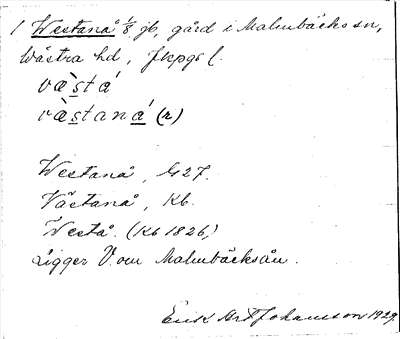 1 Westanå 1/8 gb, gård i Malmbäcks sn,
Wästra hd, Jkpgs l.
væ̀sta´
væ̀stana´ (2)
Westanå, G27.
Västanå, Kb.
Westå. (Kb 1826)
Ligger V. om Malmbäcksån.
Erik Johansson 1929.